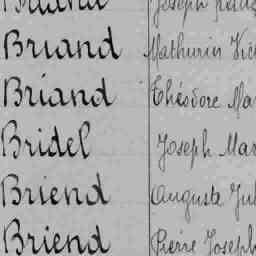 Briand Joseph
Briand Mathurin Vic
Briand Théodore Mar
Bridel Joseph Mar
Briend Auguste Jul
Briend Pierre Joseph